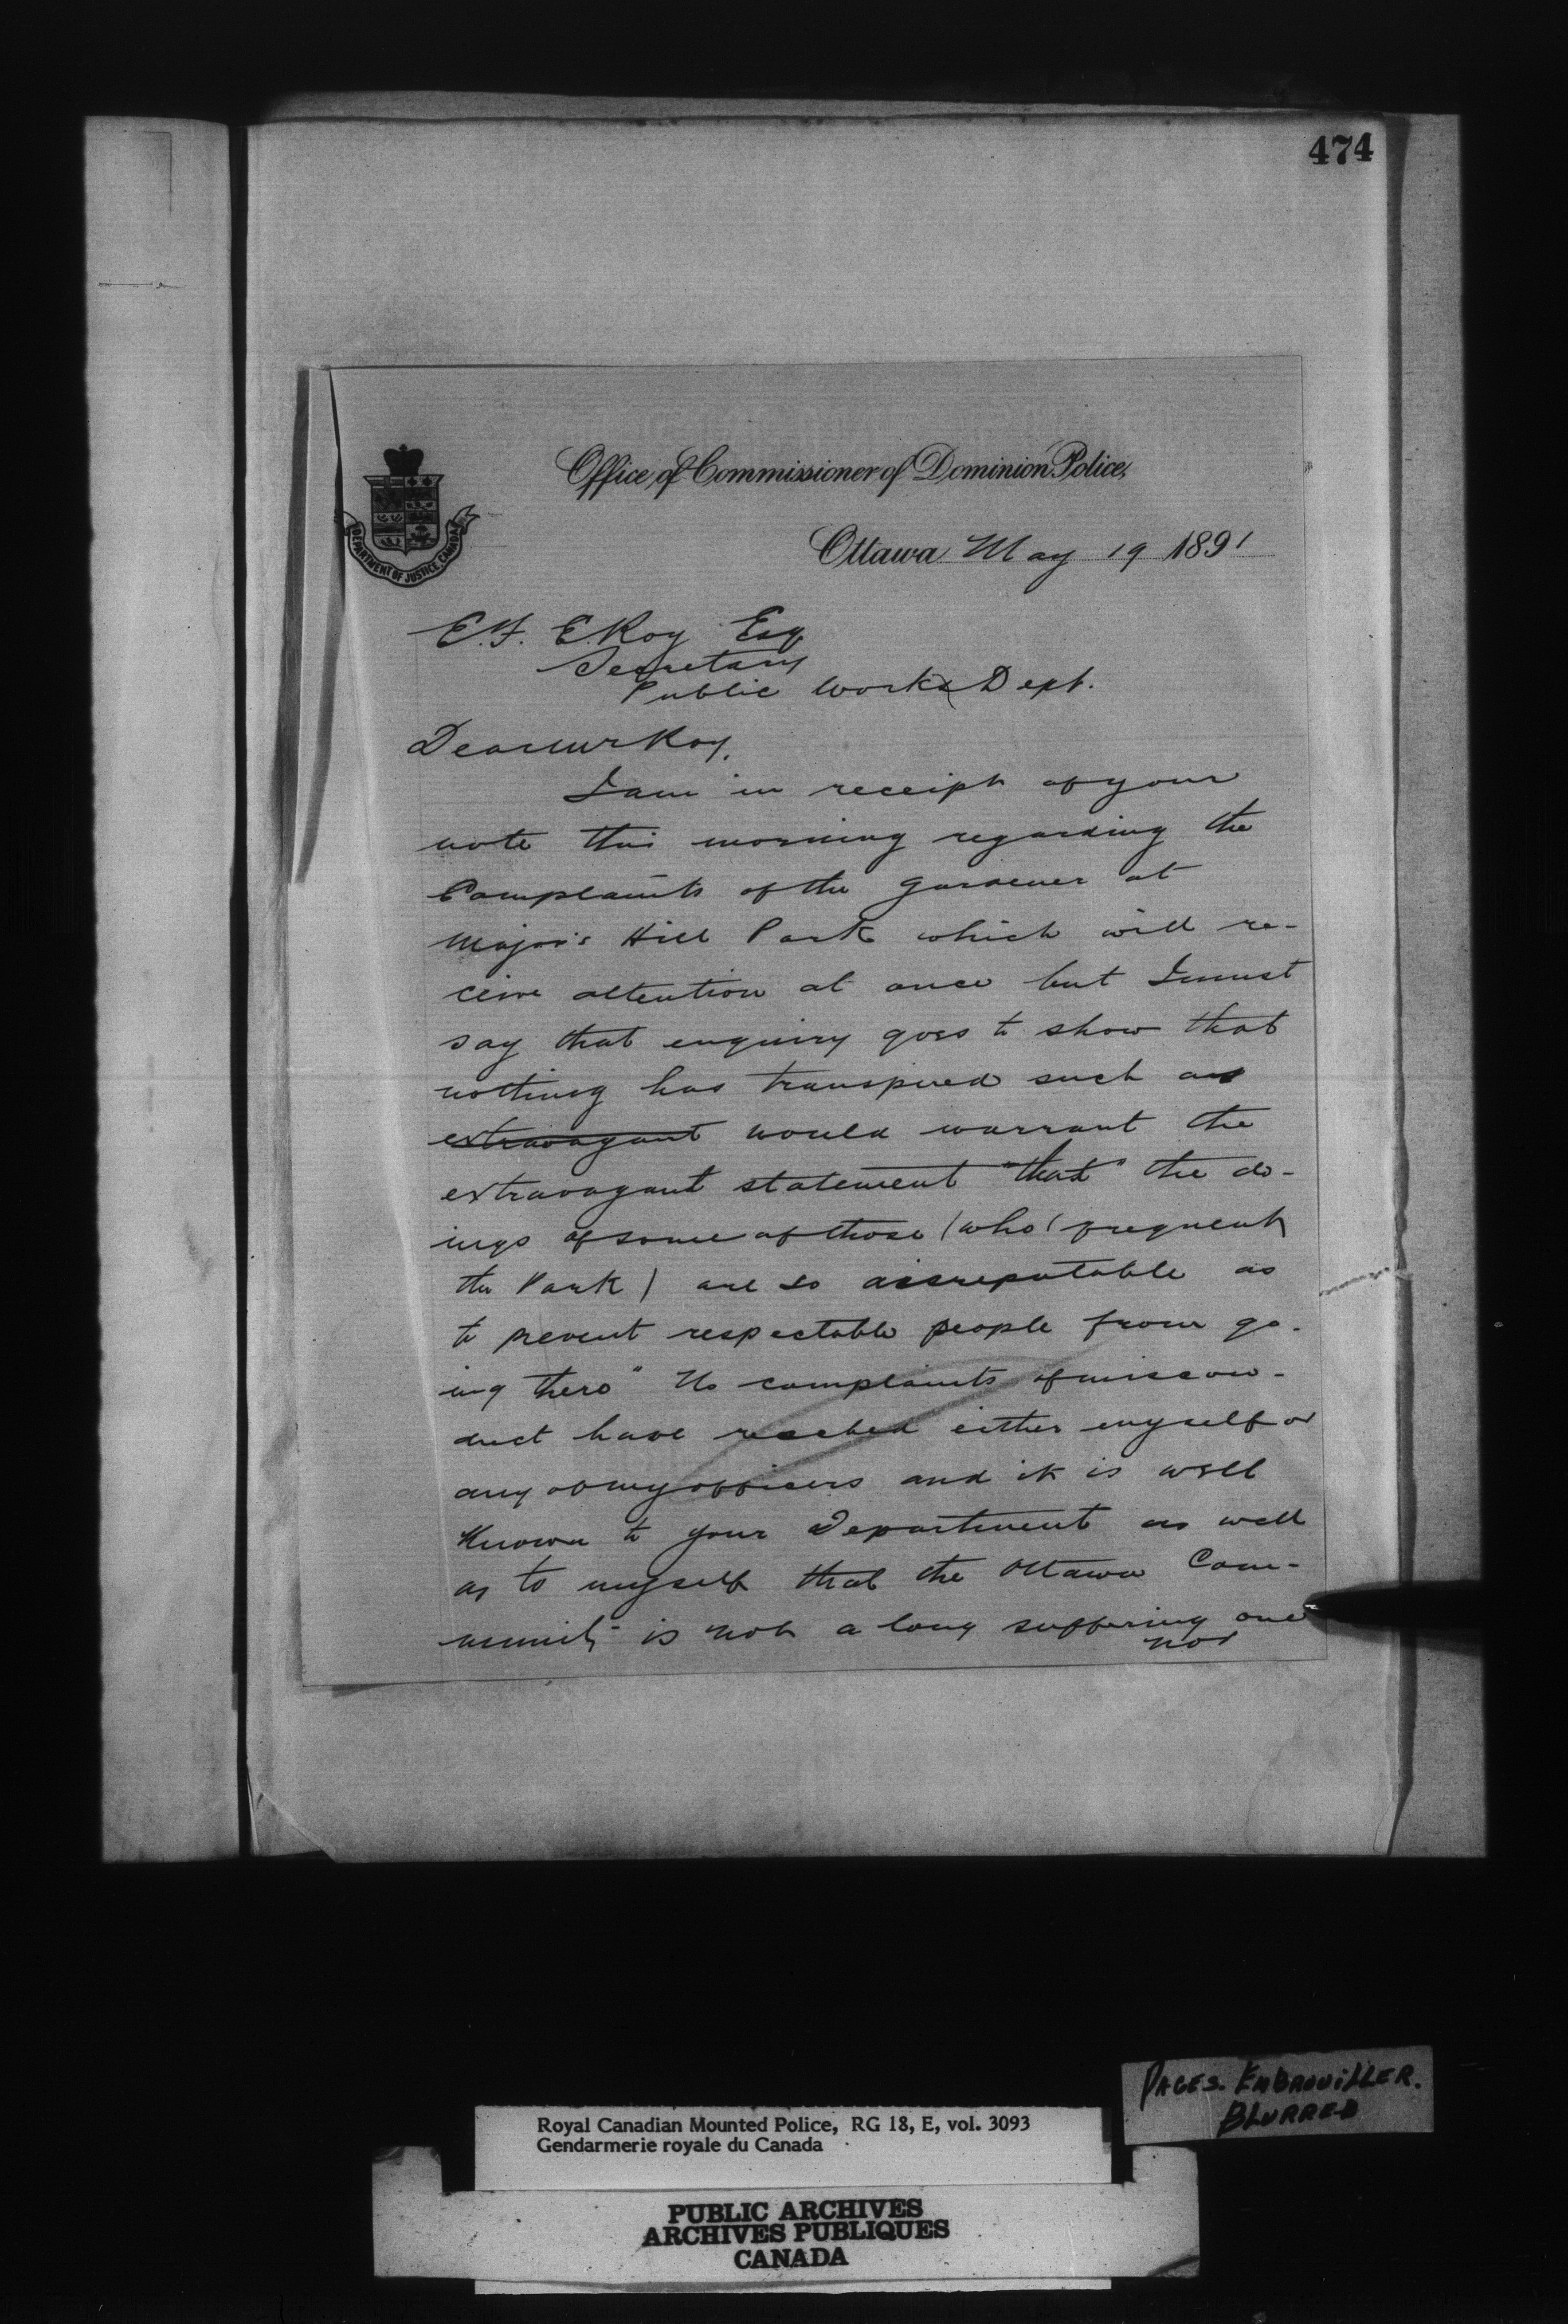 474
Office of Commissioner of Dominion Police,
DEPARTMENT OF JUSTICE CANADA
Ottawa May 19 1891
E.F. E. Roy Esq
Secretary
Public Works Dept.
Dear Mr Roy,
I am in receipt of your
note this morning regarding the
Complaints of the gardener at
Major's Hill Park which will re-
ceive attention at once but I must
say that enquiry goes to show that
nothing has transpired such as
extravagant would warrant the
extravagant statement "that" the do-
ings of some of those (who (frequent
the Park) are so disreputable as
to prevent respectable people from go-
ing there" No complaints of miscon-
duct have reached either myself or
any of my officers and it is well
Known to your Department as well
as to myself that the Ottawa Com-
munity is not a long suffering one
nor
PAGES. EMBROUILLER.
BLURRED
Royal Canadian Mounted Police, RG 18, E, vol. 3093
Gendarmerie royale du Canada
PUBLIC ARCHIVES
ARCHIVES PUBLIQUES
CANADA